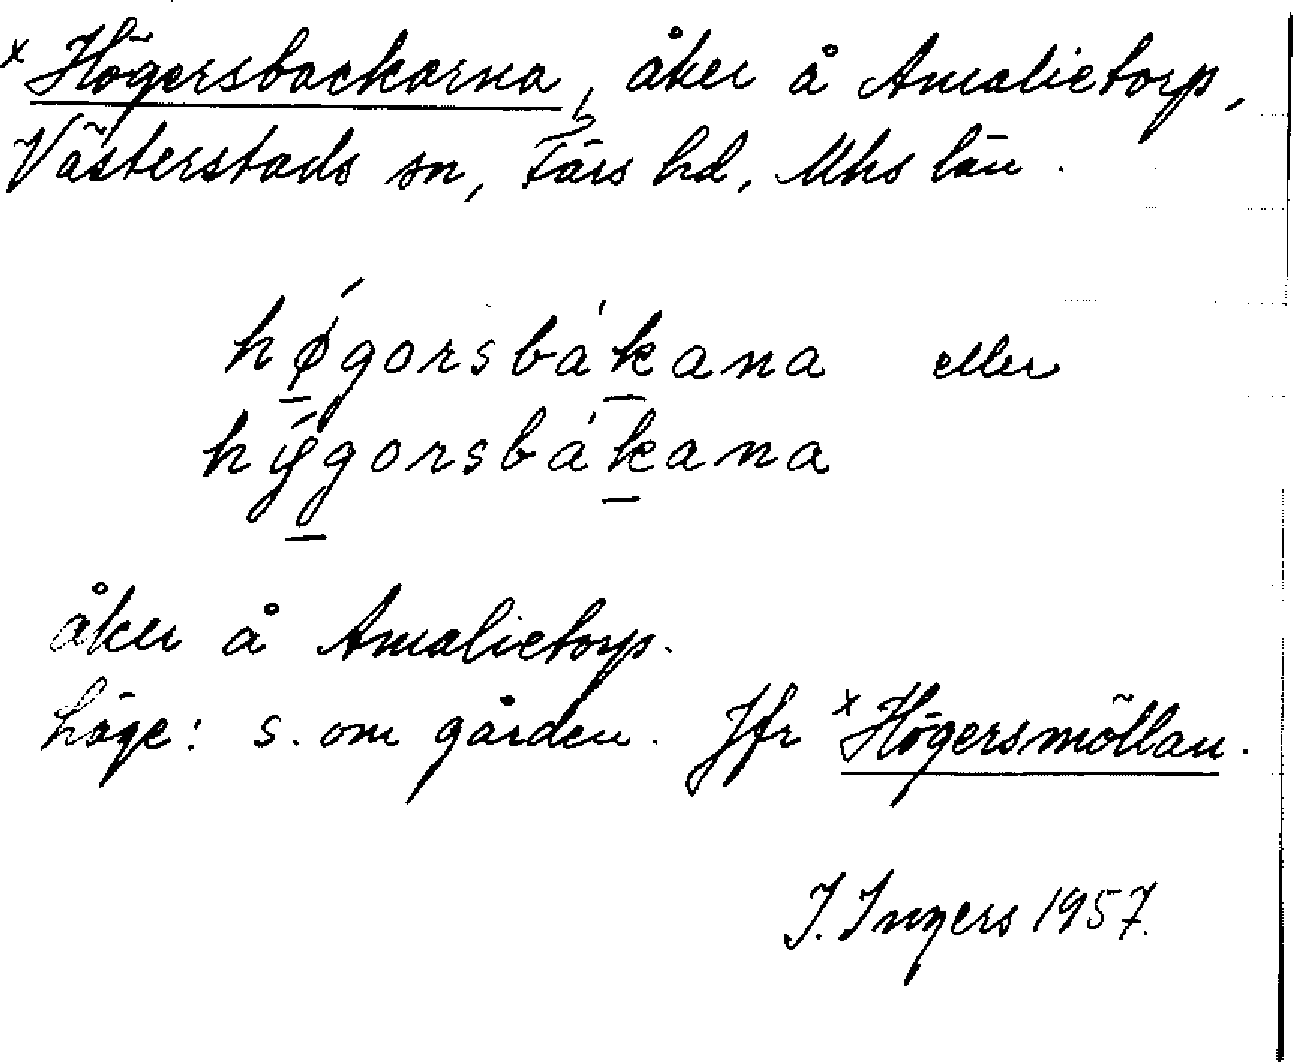 x Högersbackarna, åker å Amalietorp,
Västerstads sn, Färs hd, Mhs län.
hǿgorsbákana eller
hýgorsbákana
åker å Amalietorp.
Läge: s. om gården. Jfr x Högersmöllan.
I. Ingers 1957.